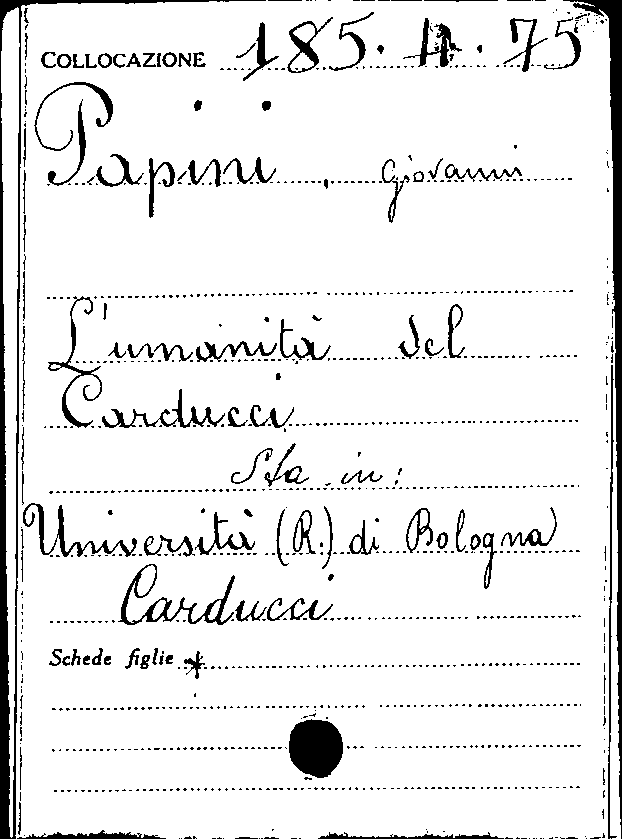 COLLOCAZIONE 185. 4. 75
Papini, Giovanni
L'umanità del
Carducci
Sta in:
Università (R.) di Bologna
Carducci
Schede figlie *